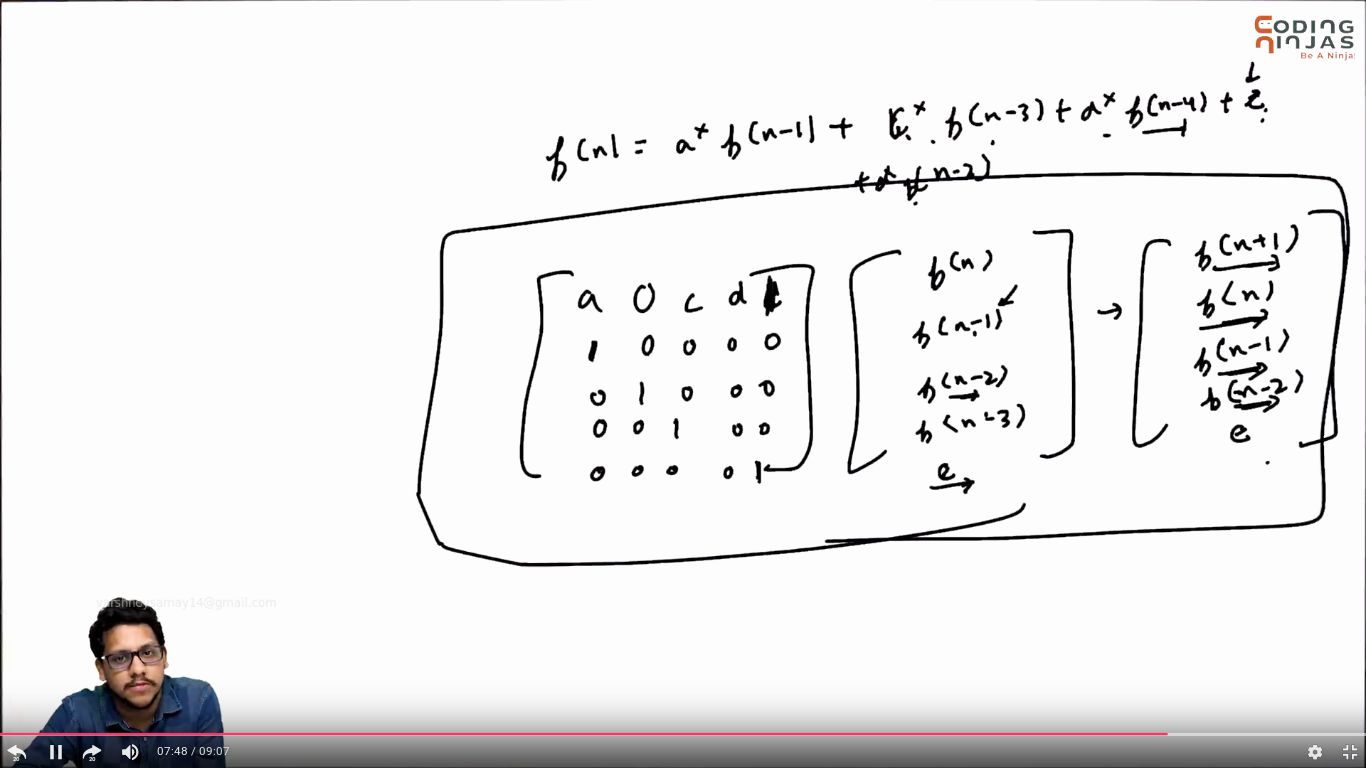 CODING
NINJAS
Be A Ninja
f(n) = a* f(n-1) + c* f(n-3) + d* f(n-4) + e
f(n-2)
a 0 c d
1 0 0 0 0
0 1 0 0 0
0 0 1 0 0
0 0 0 0 1
f(n)
f(n-1)
f(n-2)
f(n-3)
e
→
f(n+1)
f(n)
f(n-1)
f(n-2)
e
varshneysamay14@gmail.com
20
20
07:48 / 09:07